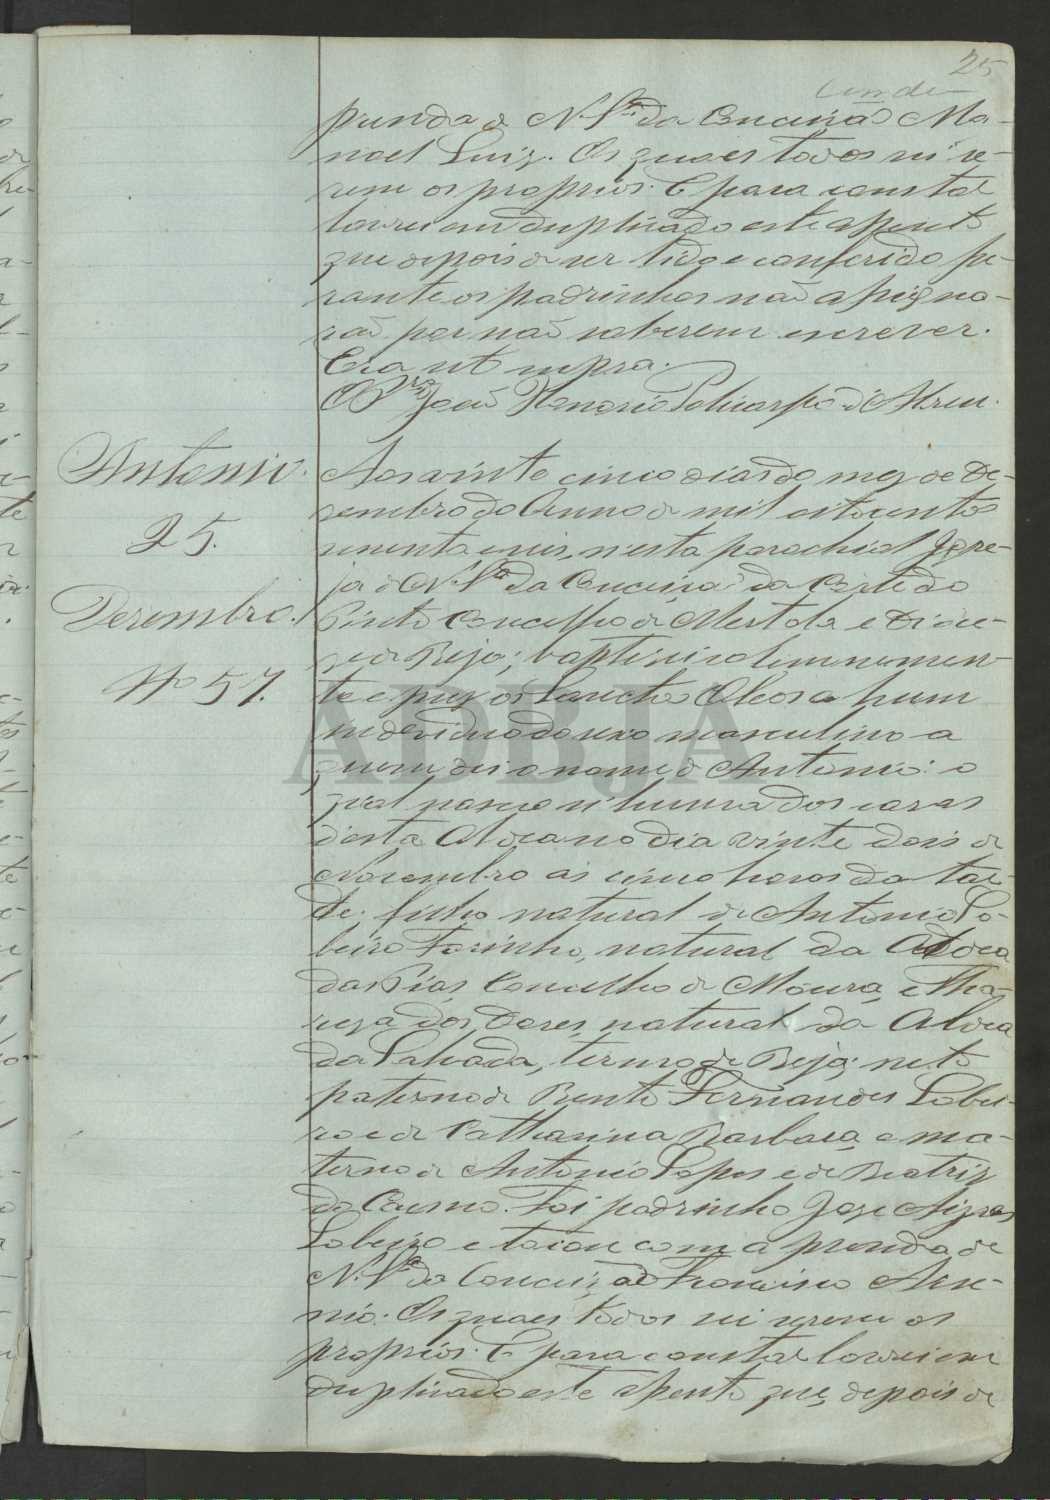 25
prenda de N. Srª da Conceição Ma-
noel Luiz. Os quaes todos sei se-
rem os proprios. E para constar
lavrei em duplicado este assento
que depois de ser lido e conferido pe-
rante os padrinhos não assigna-
rão por não saberem escrever.
Era ut supra.
O Pr João Policarpo d'Abreu.
Antonio.
25.
Dezembro.
Nº 57.
Aos vinte cinco dias do mez de De-
zembro do Anno de mil oitocentos
sesenta e seis, n'esta parochial Igre-
ja de N. Srª da Conceição da Corte do
Pinto Concelho de Mertola e Dioce-
ze de Beja; baptisei solemnemen-
te e puz os Sanctos Oleos a hum
individuo do sexo masculino a
quem dei o nome de Antonio: o
qual nasceo n'huma das casas
desta Aldea no dia vinte dois de
Novembro as cinco horas da tar-
de: filho natural de Antonio Lo-
beiro Farinho, natural da Aldea
das Pias, Concelho de Moura, e Tha-
reza das Dores, natural da Aldea
da Salvada, termo de Beja; neto
paterno de Bento Fernandes Lobei-
ro e de Catharina Barbara, e ma-
terno de Antonio Lopes e de Beatriz
do Carmo. Foi padrinho Jose
Lobeiro e tocou com a prenda de
N. Srª da Conceição Francisco Arse-
nio. Os quaes todos sei serem os
proprios. E para constar lavrei em
duplicado este assento que, depois de
ADBJA